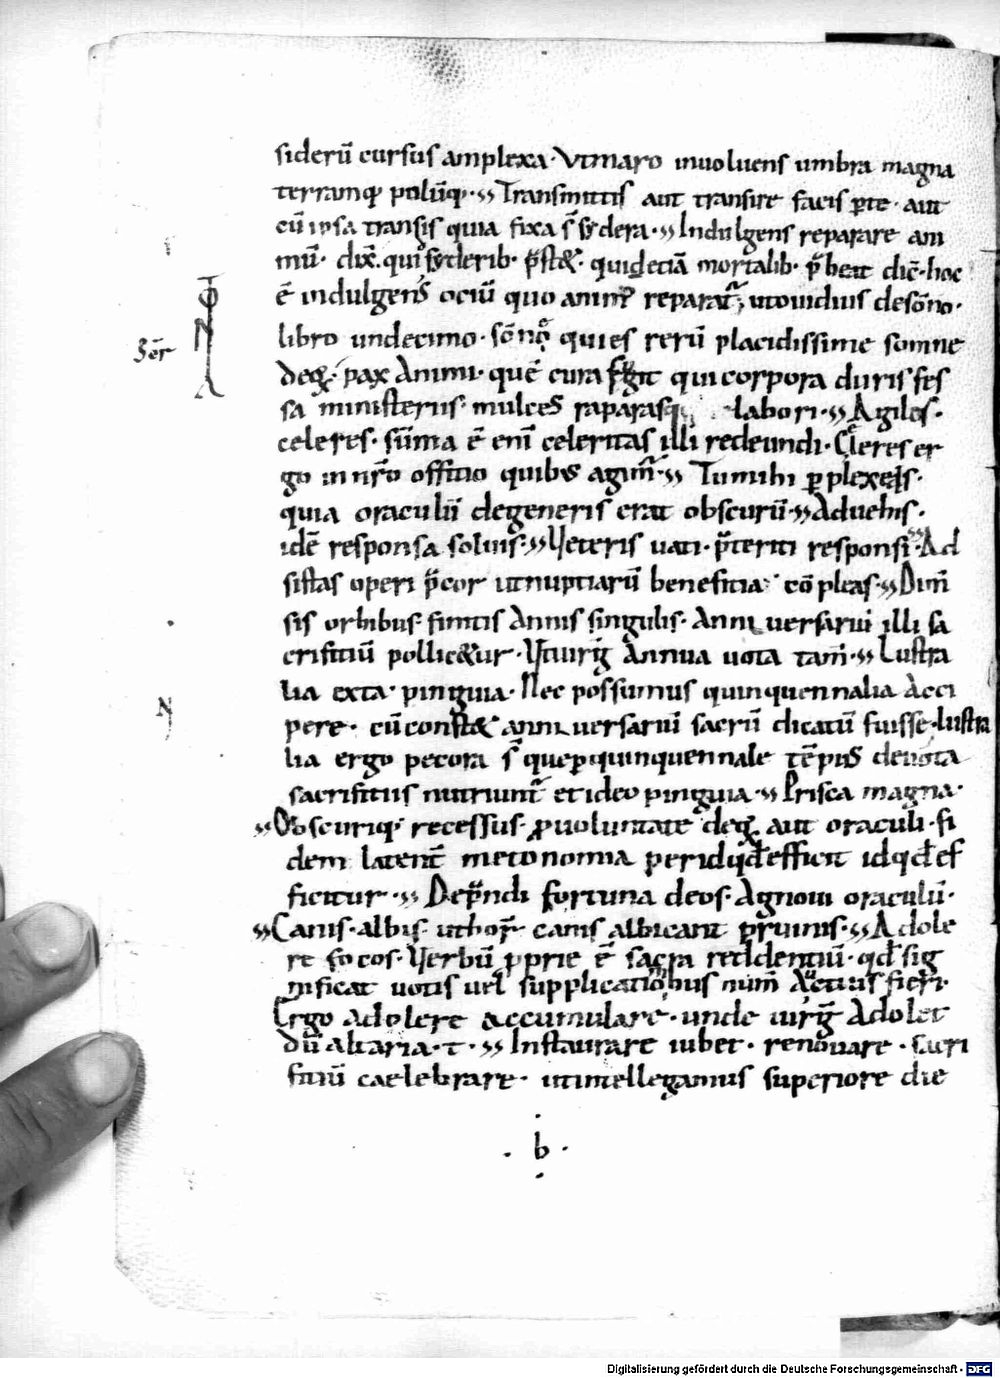 siderū cursus amplexa· Vt maro inuoluens umbra magna
terramq; polūq;· Transmittis aut transire facis p̱te· aut
cū ipsa transis quia fixa s̄ sydera· Indulgens reparare ani
mū· dix̄· qui syderib· p̄st&· quid etiā mortalib· p̄beat dic̄· hoc
ē indulgens ociū quo animꝰ reparat᷑, ut ouidius de sōno·
libro undecimo· sōno quies rerū placidissime somne
deoꝝ· pax Animi· quē cura fugit qui corpora duris fes
Ser̄
sa ministeriis· mulces raparasq; labori· Agiles·
celeres· sūma ē enī celeritas illi redeundi· Celeres er
go in nr̄o offitio quibus agim᷑· Tu mihi ꝑplexeis·
quia oraculū degeneris erat obscurū· Aduehis·
idē responsa soluis· Veteris uati· p̄teriti responsi· Ad
sistas operi p̄cor ut nuptiarū benefitia cōpleas· Dim̄
sis orbibus· finitis Annis singulis· Anniuersarii illi sa
crifitiū pollic&ur· Vt uirḡ Annua uota tam̄· Lustra
lia exta· pinguia· Nec possumus quinquennalia Acci
N
pere· cū const& anniuersariū sacrū dicatū fuisse· lustra
lia ergo pecora s̄ que ꝑ quinquennale tēpus deuota
sacrifitiis nutriunt᷑ et ideo pinguia· Prisca magna·
Obscuriq;· recessus· ꝓ uoluntate deoꝝ aut oraculi· fi
dem latent̄ metonomia per id qđ efficit id qđ ef
ficitur· Dep̄ndi fortuna deos· Agnoui oraculū·
Canis· albis· ut hor̄ canis albicant pruinis· Adole
re focos· Verbū ꝓprie ē sacra reddentiū· qđ sig
nificat uotis uel supplicationibus num̄ Auctius fieri·
Ergo adolere accumulare· unde uirḡ Adolet
dū altaria· t· Instaurare iubet· renouare· sacri
fitiū caelebrare· ut intellegamus superiore die
· b ·
Digitalisierung gefördert durch die Deutsche Forschungsgemeinschaft · DFG